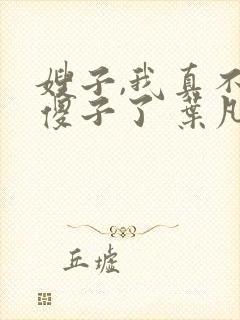 嫂子,我真不
傻子了 葉凡
丘墟